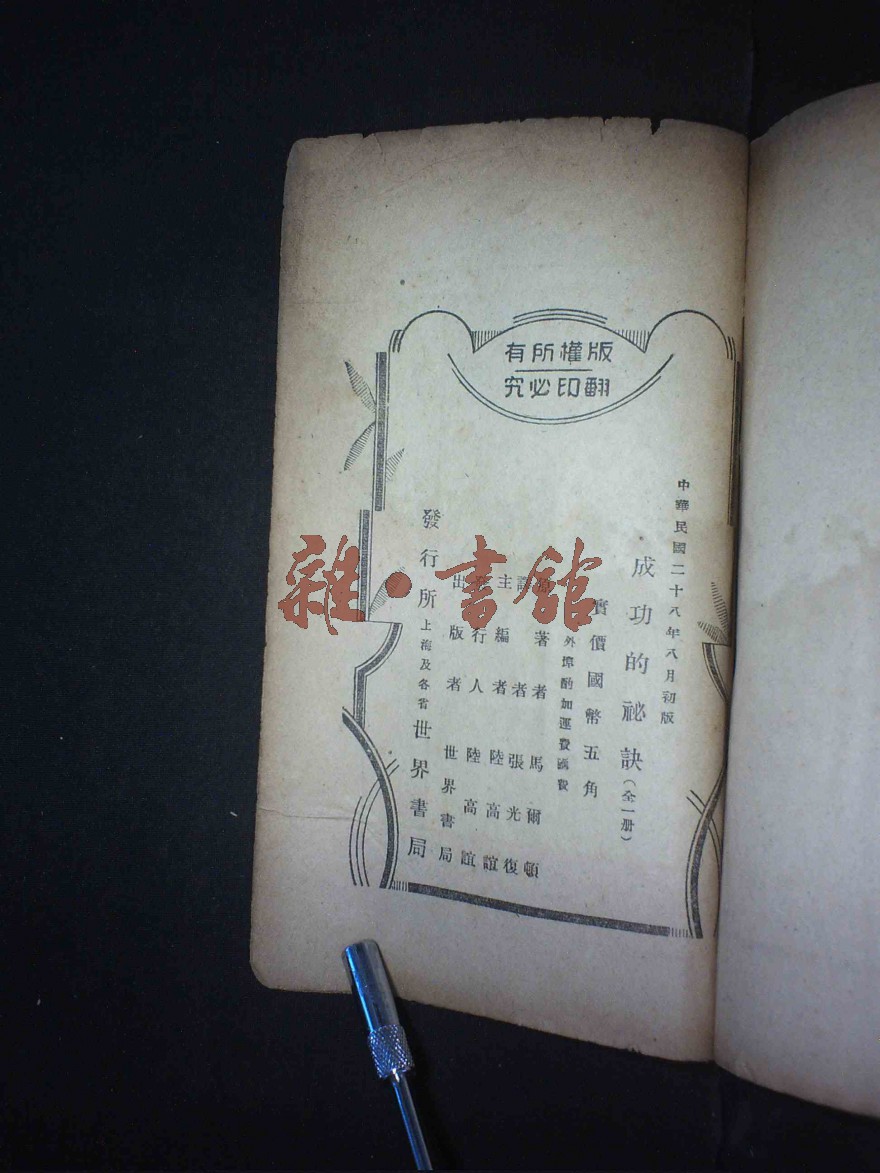 版權所有
翻印必究
中華民國二十八年八月初版
成功的祕訣（全一册）
實價國幣五角
外埠酌加運費匯費
著者 馬爾頓
譯者 張光復
主編者 陸高誼
發行人 陸高誼
出版者 世界書局
發行所 上海及各省 世界書局
雜·書館